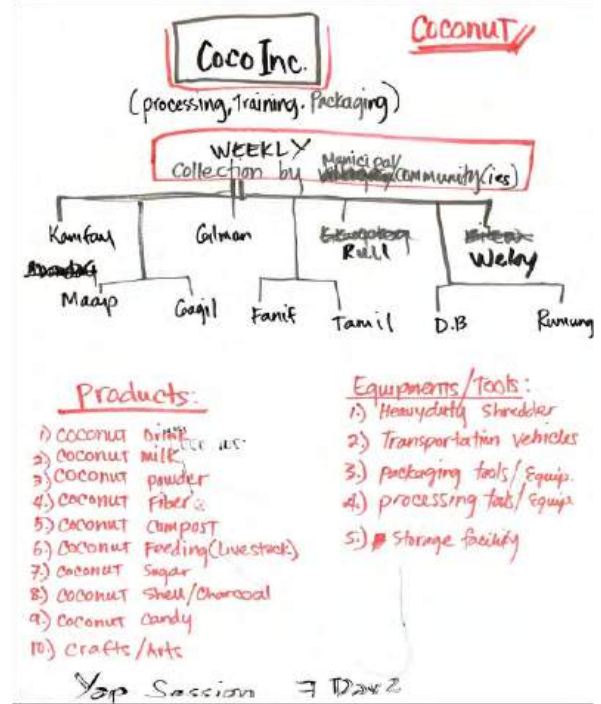 Coconut
Coco Inc.
(processing, Training. Packaging)
WEEKLY
Collection by Municipal Community(ies)
Kanifay Gilman Rull Weloy
Maap Gagil Fanif Tamil D.B Rumung
Products:
1) Coconut Drink
2) Coconut milk
3) Coconut powder
4.) Coconut Fiber
5) Coconut Compost
6) Coconut Feeding (Livestock)
7) Coconut Sugar
8) Coconut Shell/Charcoal
9.) Coconut Candy
10.) Crafts/Arts
Equipments/Tools:
1.) Heavyduty Shredder
2.) Transportation vehicles
3.) packaging tools/Equip.
4.) processing tools/Equip
5.) Storage facility
Yap Session Day 2